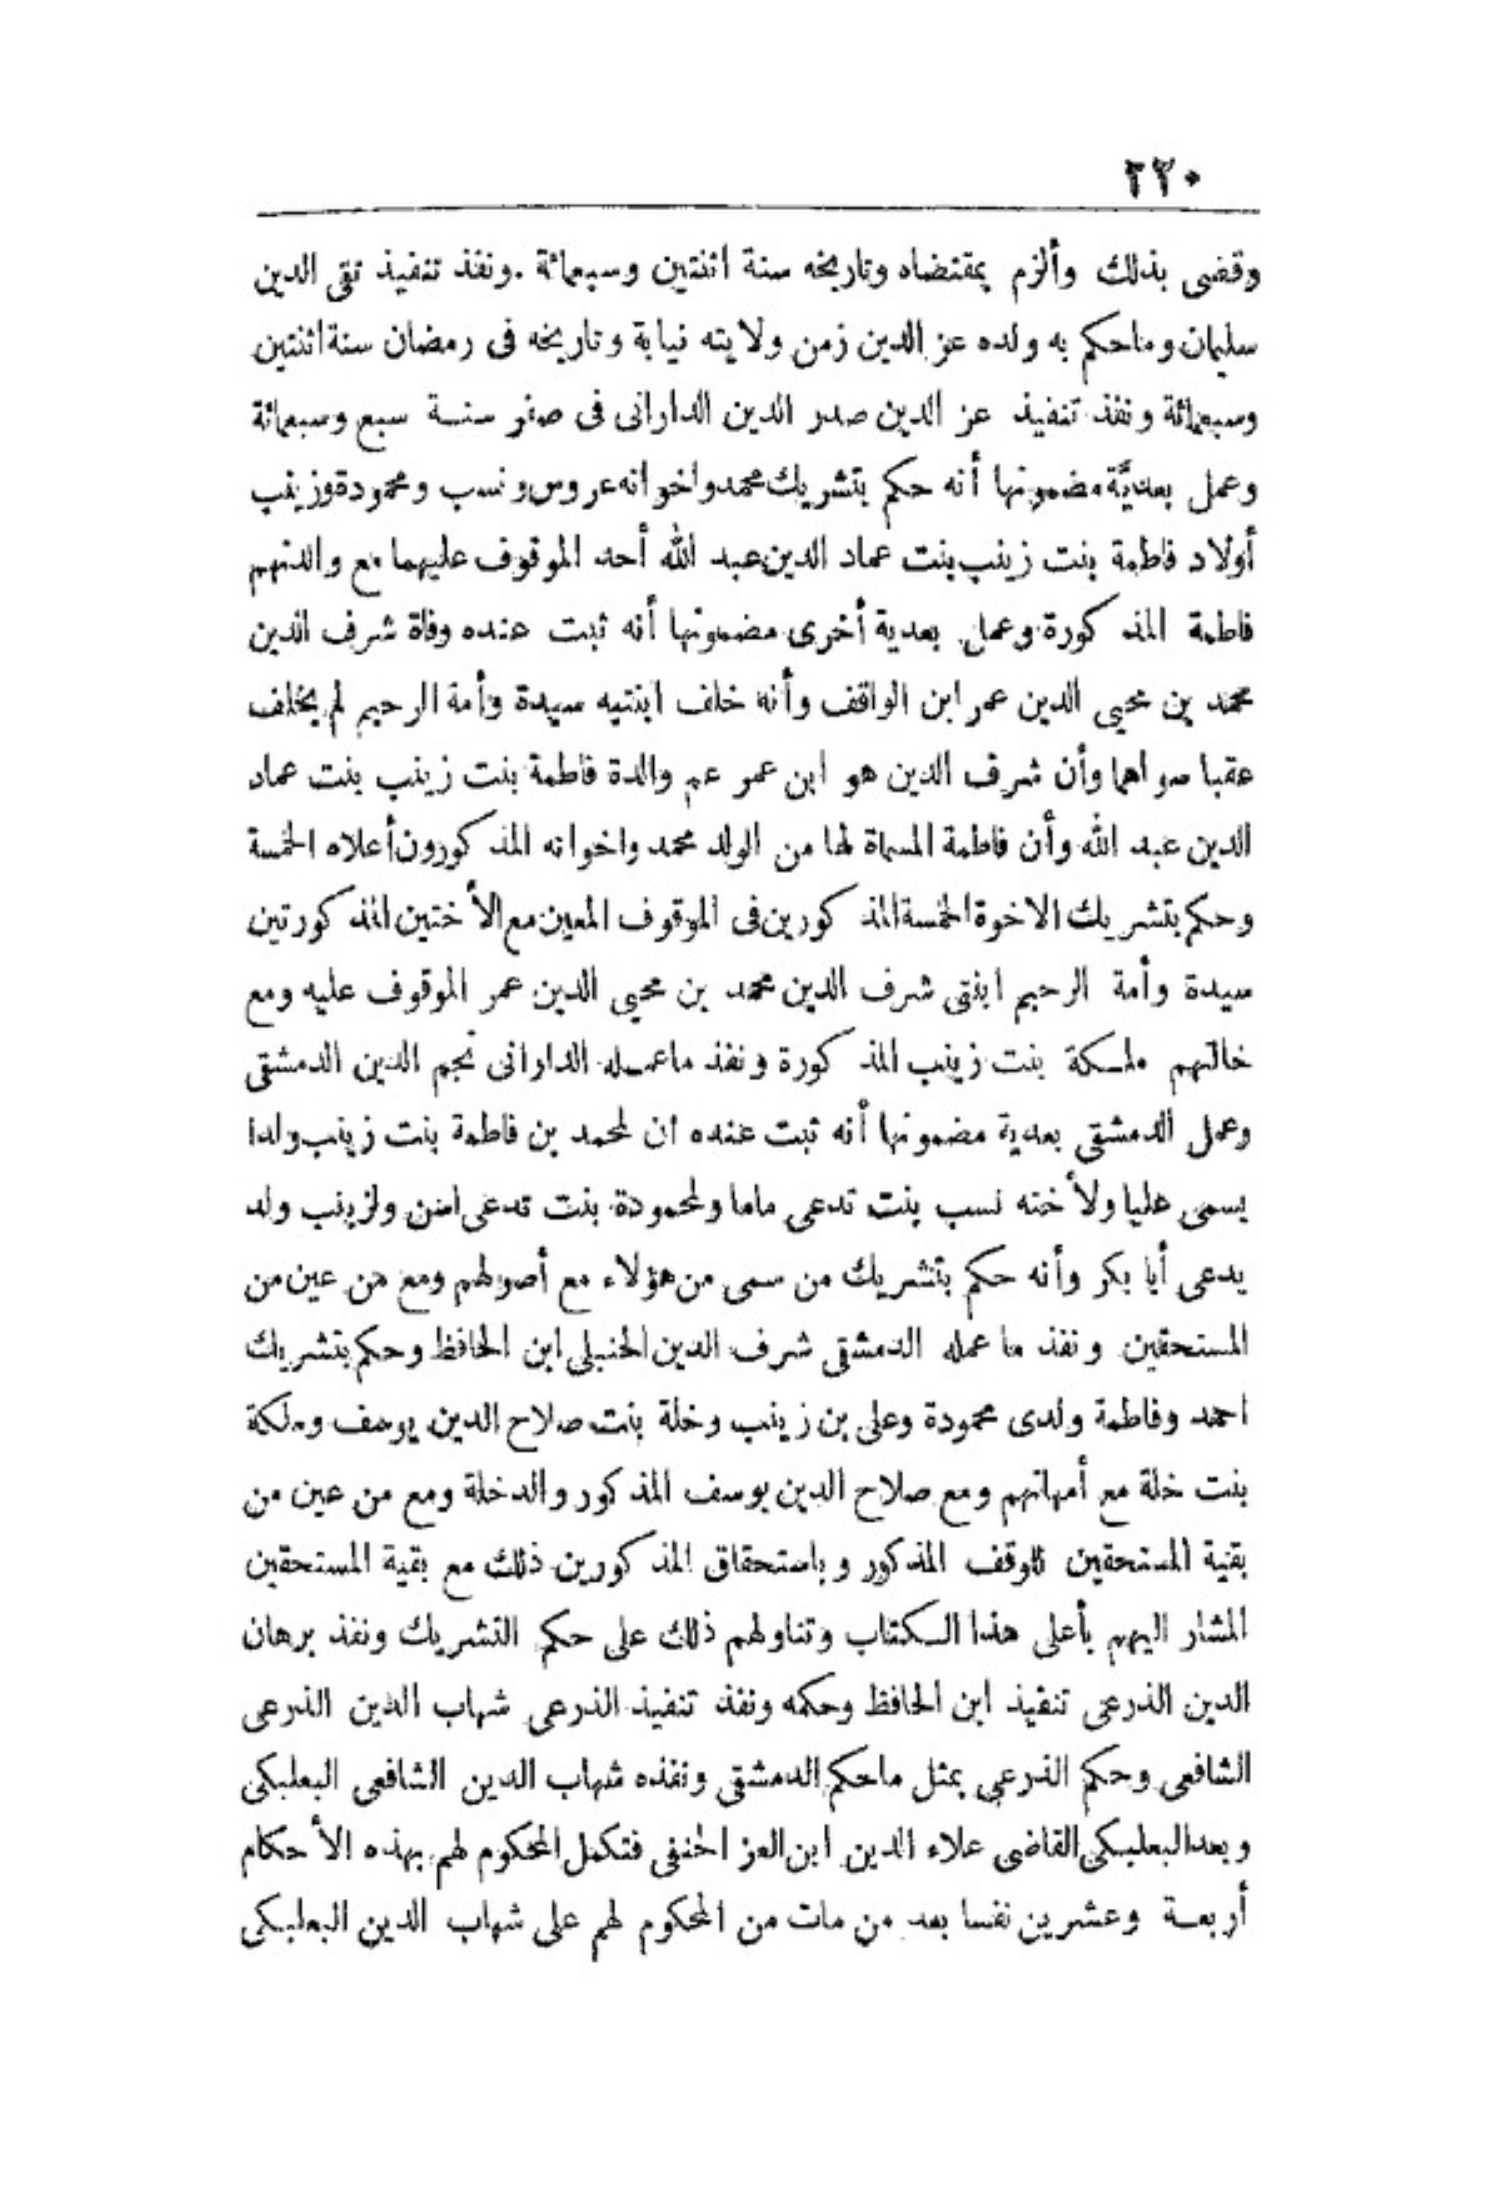 ٢٢٠
وقضى بذلك وألزم بمقتضاه وتاريخه سنة اثنتين وسبعمائة . ونفذ تنفيذ تقى الدين
سليمان وما حكم به ولده عز الدين زمن ولايته نيابة وتاريخه فى رمضان سنة اثنتين
وسبعمائة ونفذ تنفيذ عز الدين صدر الدين الدارانى فى صفر سنة سبع وسبعمائة
وعمل بعديَّة مضمونها أنه حكم بتشريك محمد واخوانه عروس ونسب ومحمودة وزينب
أولاد فاطمة بنت زينب بنت عماد الدين عبد الله أحد الموقوف عليهما مع والدتهم
فاطمة المذكورة وعمل بعدية أخرى مضمونها أنه ثبت عنده وفاة شرف الدين
محمد بن محيى الدين عمر ابن الواقف وأنه خلف ابنتيه سيدة وأمة الرحيم لم يخلف
عقبا سواهما وأن شرف الدين هو ابن عمر عم والدة فاطمة بنت زينب بنت عماد
الدين عبد الله وأن فاطمة المسماة لها من الولد محمد واخوانه المذكورون أعلاه الخمسة
وحكم بتشريك الاخوة الخمسة المذكورين فى الموقوف المعين مع الأختين المذكورتين
سيدة وأمة الرحيم ابنتى شرف الدين محمد بن محيى الدين عمر الموقوف عليه ومع
خالتهم ملكة بنت زينب المذكورة ونفذ ما عمله الدارانى نجم الدين الدمشقى
وعمل الدمشقى بعدية مضمونها أنه ثبت عنده ان لمحمد بن فاطمة بنت زينب ولدا
يسمى عليا ولأخته نسب بنت تدعى ماما ولمحمودة بنت تدعى امن ولزينب ولد
يدعى أبا بكر وأنه حكم بتشريك من سمى من هؤلاء مع أصولهم ومع من عين من
المستحقين ونفذ ما عمله الدمشقى شرف الدين الحنبلى ابن الحافظ وحكم بتشريك
احمد وفاطمة ولدى محمودة وعلى بن زينب وخلة بنت صلاح الدين يوسف وملكة
بنت خلة مع أمهاتهم ومع صلاح الدين يوسف المذكور والد خلة ومع من عين من
بقية المستحقين للوقف المذكور وباستحقاق المذكورين ذلك مع بقية المستحقين
المشار اليهم بأعلى هذا الكتاب وتناولهم ذلك على حكم التشريك ونفذ برهان
الدين الذرعى تنفيذ ابن الحافظ وحكمه ونفذ تنفيذ الذرعى شهاب الدين الذرعى
الشافعى وحكم الذرعى بمثل ما حكم الدمشقى ونفذه شهاب الدين الشافعى البعلبكى
وبعد البعلبكى القاضى علاء الدين ابن العز الحنفى فتكمل المحكوم لهم بهذه الأحكام
أربعة وعشرين نفسا بعد من مات من المحكوم لهم على شهاب الدين البعلبكى